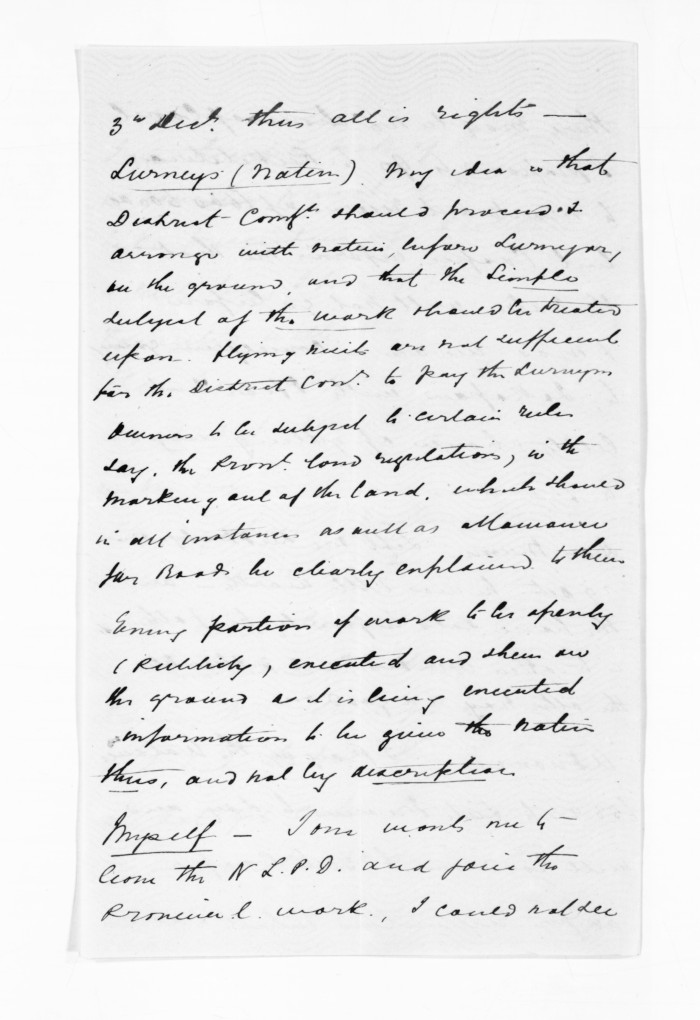 3rd Dist. thus all is rights —
Surveys (Native). My idea is that
District Comr. should proceed &
arrange with natives, before Surveyor,
on the ground, and that the Simple
subject of the work should be treated
upon. Flying visits are not sufficient
for the District Comr. to pay the Surveys
Owners to be subject to certain rules
say, the Provl. land regulations, in the
marking out of the land. which should
in all instances as well as allowance
for Roads be clearly explained to them
Every portion of work to be openly
(Publicly, executed and shewn on
the ground as it is being executed
information to be given the natives
thus, and not by description
Myself — wants me to
leave the N L. P. D. and join the
Provincial. work., I could not see